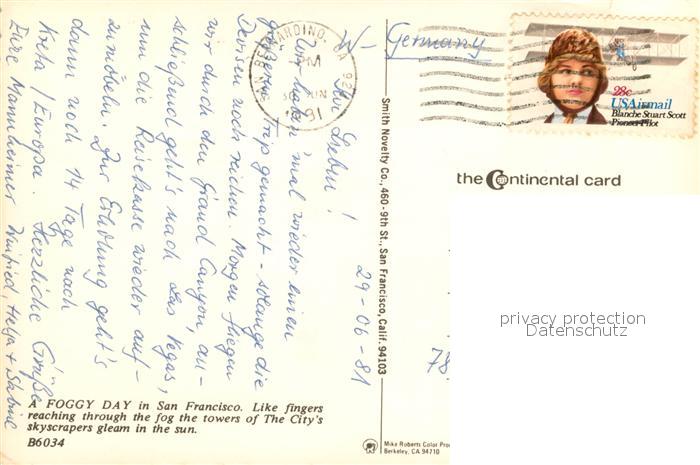 W-Germany
SAN BERNARDINO, CA 92
PM
30 JUN
1981
28c
USAirmail
Blanche Stuart Scott
Pioneer Pilot
the Continental card
29-06-81
Ihr Lieben!
Wir haben 'mal wieder einen
großen Trip gemacht - solange die
Devisen noch reichen. Morgen fliegen
wir durch den Grand Canyon, an-
schließend geht's nach Las Vegas,
um die Reisekasse wieder auf-
zumöbeln. Zur Erholung geht's
dann noch 14 Tage nach
Kreta/Europa. Herzliche Grüße
Eure Mannheimer Winfried, Helga + Sabine
Smith Novelty Co., 460-9th St., San Francisco, Calif. 94103
78
privacy protection
Datenschutz
A FOGGY DAY in San Francisco. Like fingers
reaching through the fog the towers of The City's
skyscrapers gleam in the sun.
B6034
Mike Roberts Color Pro
Berkeley, CA 94710